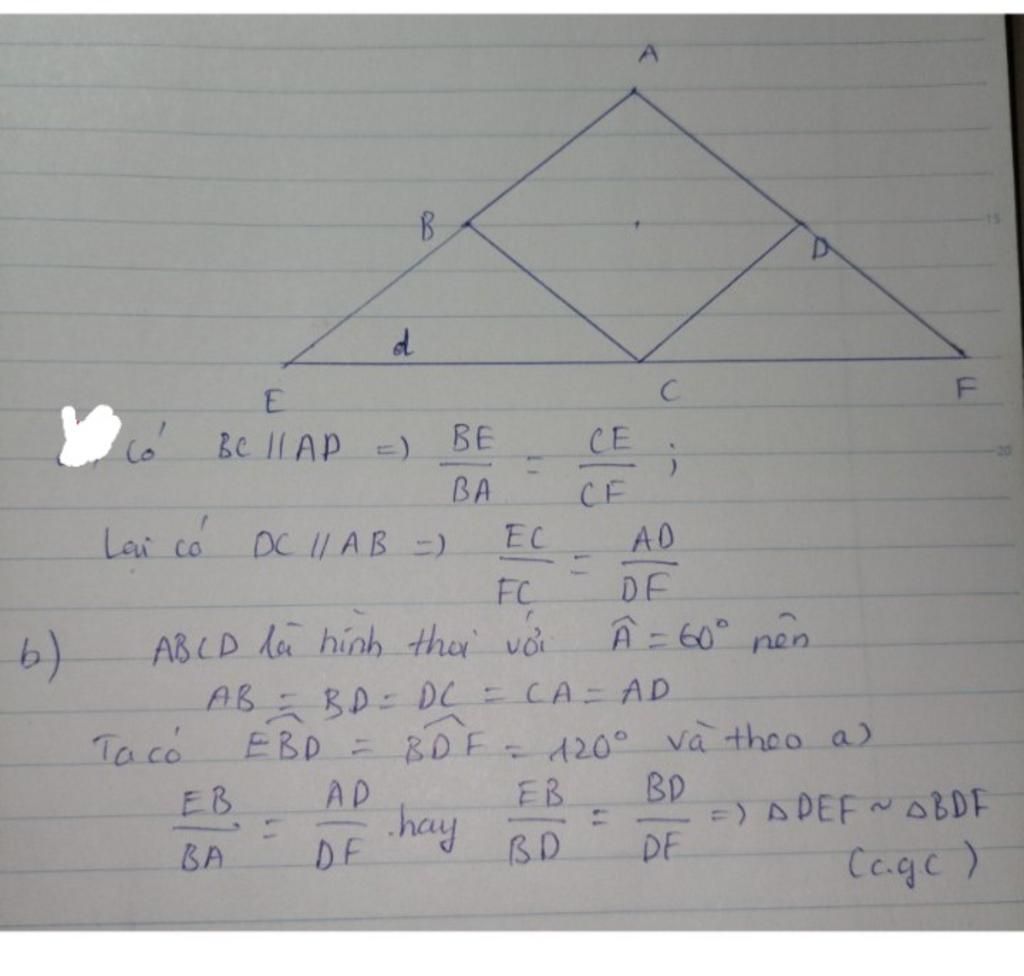 A
B
D
15
d
E
C
F
có BC // AD => BE/BA = CE/CF ;
20
Lại có DC // AB => EC/FC = AD/DF
b) ABCD là hình thoi với Â = 60° nên
AB = BD = DC = CA = AD
Ta có EBD = BDF = 120° và theo a)
EB/BA = AD/DF . hay EB/BD = BD/DF => Δ DEF ~ Δ BDF
(c.g.c)